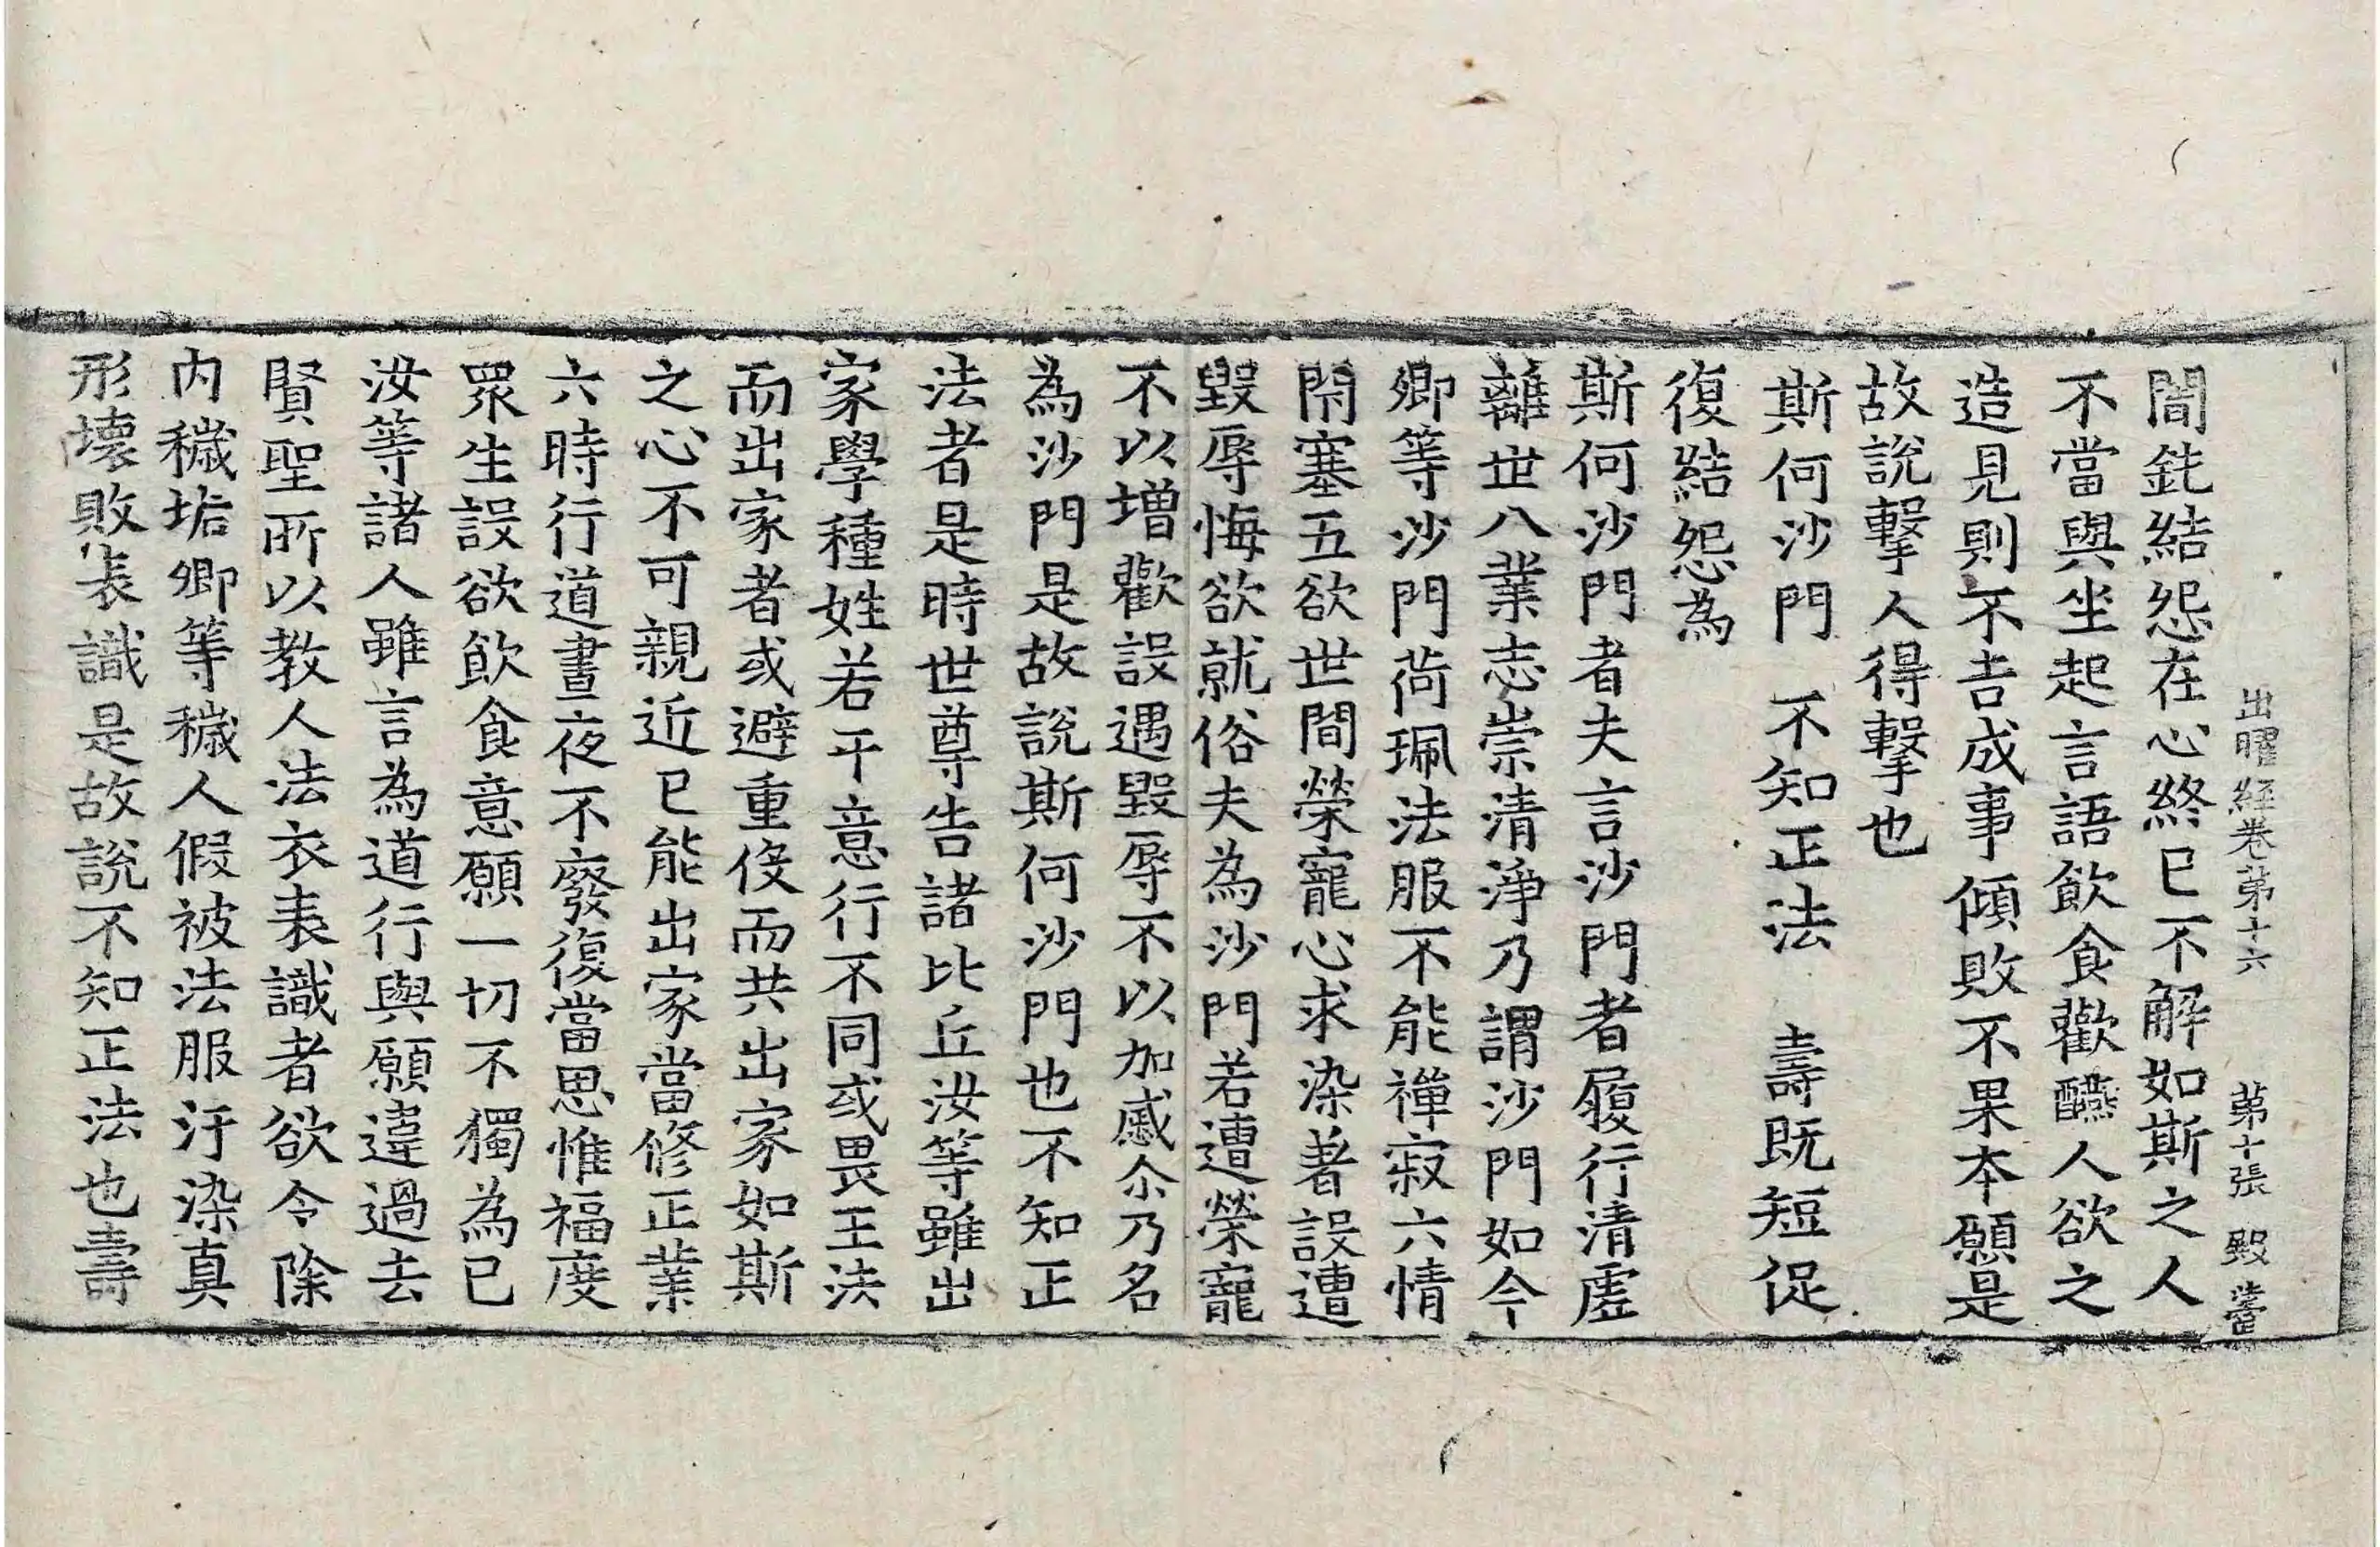 出曜經卷第十六　第十張　殿
闇鈍結怨在心終已不解如斯之人
不當與坐起言語飲食歡醼人欲之
造見則不吉成事傾敗不果本願是
故說擊人得擊也
斯何沙門　不知正法　壽既短促
復結怨為
斯何沙門者夫言沙門者履行清虛
離世八業志崇清淨乃謂沙門如今
卿等沙門荷珮法服不能禪寂六情
閇塞五欲世間榮寵心求染著設遭
毀辱悔欲就俗夫為沙門若遭榮寵
不以增歡設遇毀辱不以加慼尒乃名
為沙門是故說斯何沙門也不知正
法者是時世尊告諸比丘汝等雖出
家學種姓若干意行不同或畏王法
而出家者或避重伇而共出家如斯
之心不可親近已能出家當修正業
六時行道晝夜不廢復當思惟福度
眾生設欲飲食意願一切不獨為已
汝等諸人雖言為道行與願違過去
賢聖所以教人法衣表識者欲令除
內穢垢卿等穢人假被法服汙染真
形壞敗表識是故說不知正法也壽